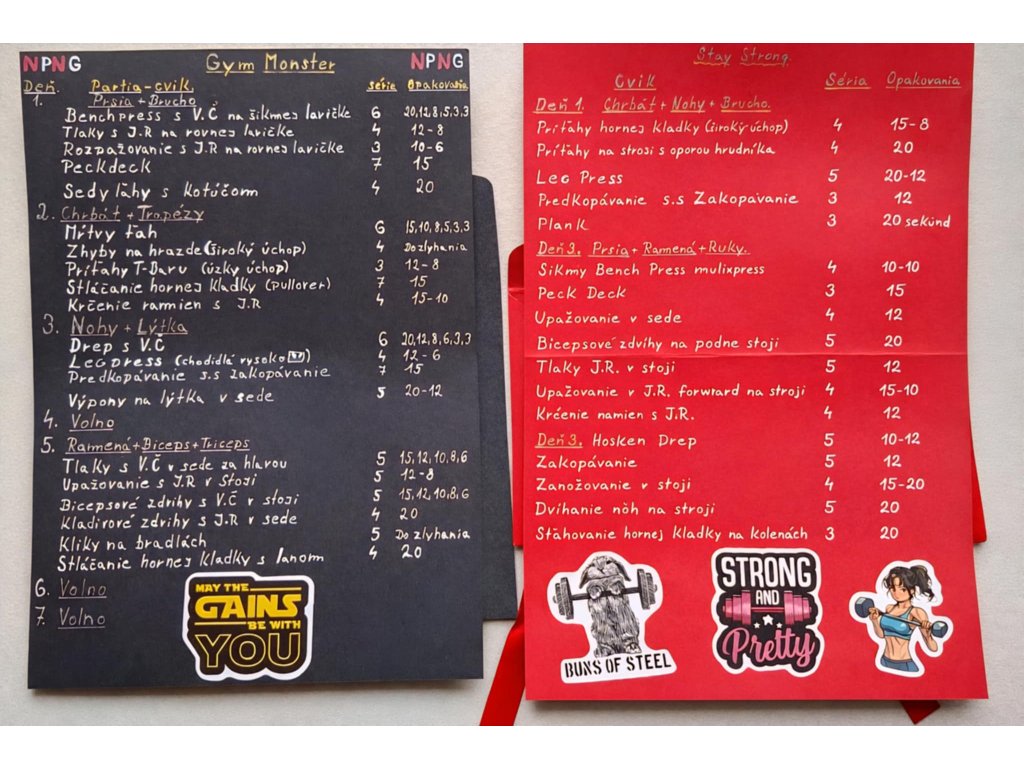 NPNG Gym Monster NPNG
Deň. Partia-cvik. série Opakovania
1. Prsia + Brucho
Benchpress s V.Č na šikmej lavičke 6 20,12,8,5,3,3
Tlaky s J.R na rovnej lavičke 4 12-8
Rozpažovanie s J.R na rovnej lavičke 3 10-6
Peckdeck 7 15
Sedy ľahy s kotúčom 4 20
2. Chrbát + Trapézy
Mŕtvy ťah 6 15,10,8,5,3,3
Zhyby na hrazde (široký úchop) 4 Do zlyhania
Príťahy T-Baru (úzky úchop) 3 12-8
Stláčanie hornej kladky (pullover) 7 15
Krčenie ramien s J.R 4 15-10
3. Nohy + Lýtka
Drep s V.Č 6 20,12,8,6,3,3
Legpress (chodidlá vysoko) 4 12-6
Predkopávanie s.s zakopávanie 7 15
Výpony na lýtka v sede 5 20-12
4. Volno
5. Ramená+Biceps+Triceps
Tlaky s V.Č v sede za hlavou 5 15,12,10,8,6
Upažovanie s J.R v stoji 5 12-8
Bicepsové zdvihy s V.Č v stoji 5 15,12,10,8,6
Kladivové zdvihy s J.R v sede 4 20
Kliky na bradlách 5 Do zlyhania
Stláčanie hornej kladky s lanom 4 20
6. Volno
7. Volno
MAY THE
GAINS
BE WITH
YOU
Stay Strong.
Cvik Séria Opakovania
Deň 1. Chrbát + Nohy + Brucho.
Príťahy hornej kladky (široký úchop) 4 15-8
Príťahy na stroji s oporou hrudníka 4 20
Leg Press 5 20-12
Predkopávanie s.s Zakopavanie 3 12
Plank 3 20 sekúnd
Deň 3. Prsia + Ramená + Ruky.
Sikmy Bench Press mulixpress 4 10-10
Peck Deck 3 15
Upažovanie v sede 4 12
Bicepsové zdvihy na podne stoji 5 20
Tlaky J.R. v stoji 5 12
Upažovanie v J.R. forward na stroji 4 15-10
Krčenie namien s J.R. 4 12
Deň 3. Hosken Drep 5 10-12
Zakopávanie 5 12
Zanožovanie v stoji 4 15-20
Dvíhanie nôh na stroji 5 20
Sťahovanie hornej kladky na kolenách 3 20
BUNS OF STEEL
STRONG
AND
Pretty